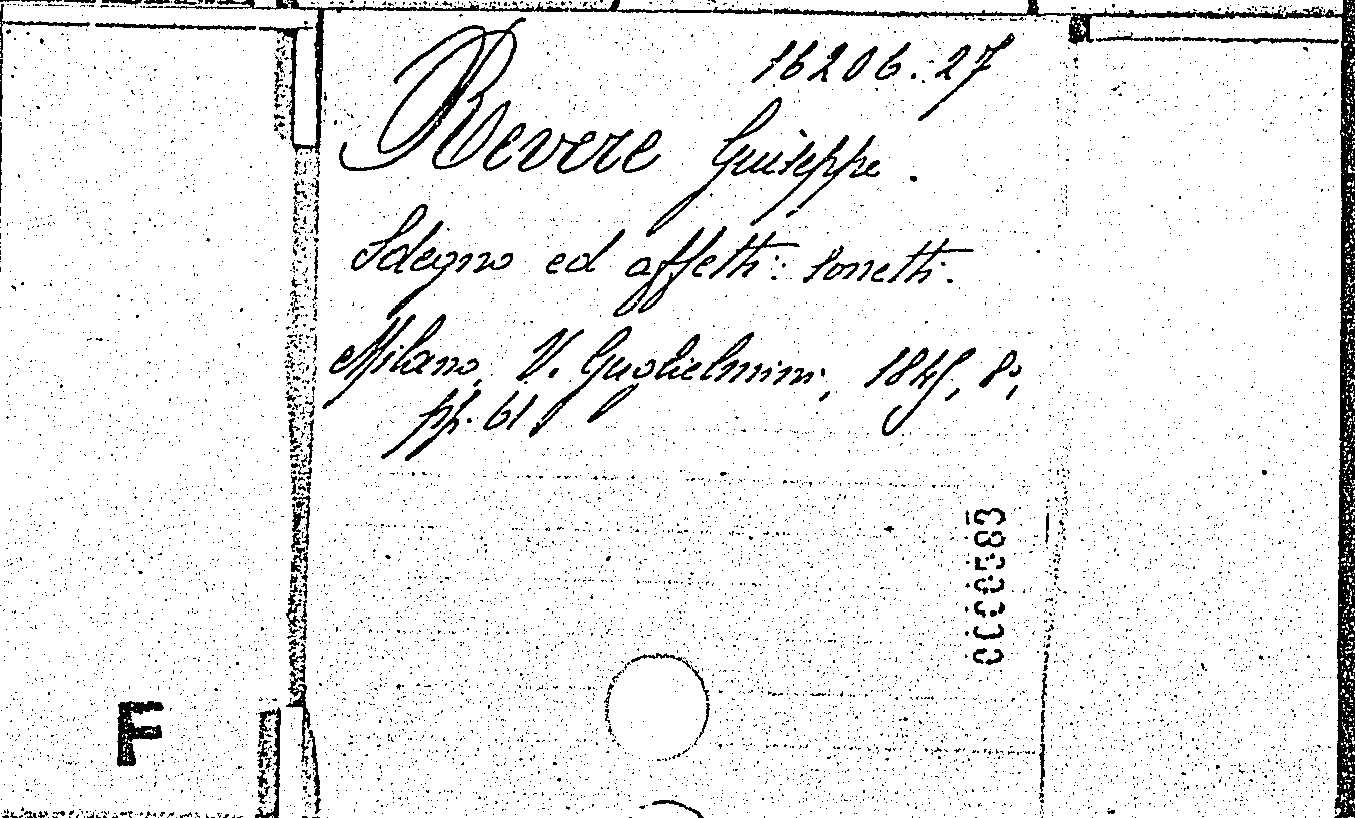 16206.27
Revere Giuseppe.
Sdegno ed affetti: sonetti.
Milano, V. Guglielmini, 1845, 8º,
pp. 61,
0000583
F